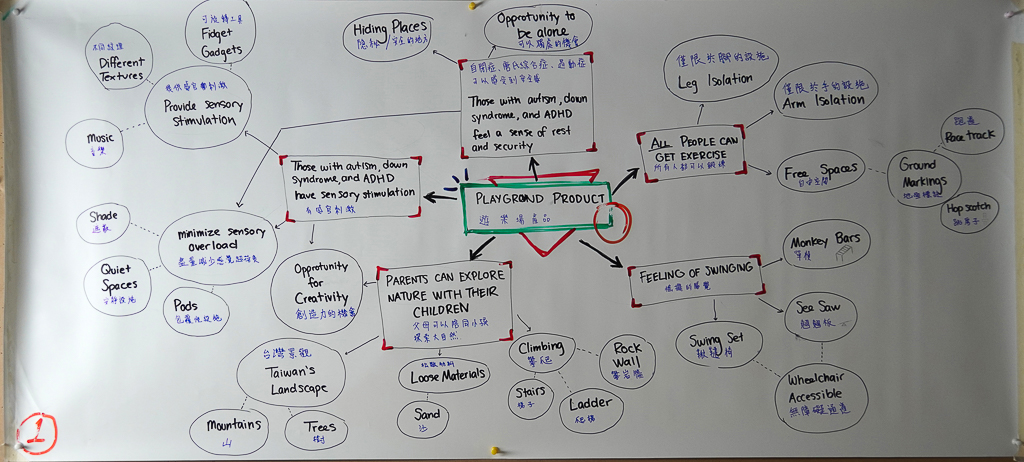 Hiding Places
Opprotunity to
be alone
Fidget
Gadgets
Different
Textures
Provide sensory
stimulation
Music
音樂
自閉症、唐氏綜合症、過動症
可以感受到安全感
Those with autism, down
syndrome, and ADHD
feel a sense of rest
and security
僅限於腳的設施
Leg Isolation
僅限於手的設施
Arm Isolation
ALL PEOPLE CAN
GET EXERCISE
所有人都可以鍛煉
Free Spaces
自由空間
跑道
Race track
Ground
Markings
地面標記
Hop scotch
跳房子
Those with autism, down
syndrome, and ADHD
have sensory stimulation
有感官刺激
PLAYGROUND PRODUCT
遊樂場產品
Shade
遮蔽
minimize sensory
overload
Quiet
Spaces
Pods
Opprotunity
for
Creativity
創造力的機會
PARENTS CAN EXPLORE
NATURE WITH THEIR
CHILDREN
父母可以陪同小孩
探索大自然
FEELING OF SWINGING
搖擺的感覺
Monkey Bars
單槓
See Saw
翹翹板
Swing Set
鞦韆椅
Wheelchair
Accessible
無障礙通道
台灣景觀
Taiwan's
Landscape
Mountains
山
Trees
樹
鬆散材料
Loose Materials
Sand
沙
Climbing
攀爬
Rock
Wall
攀岩牆
Stairs
梯子
Ladder
爬梯
1